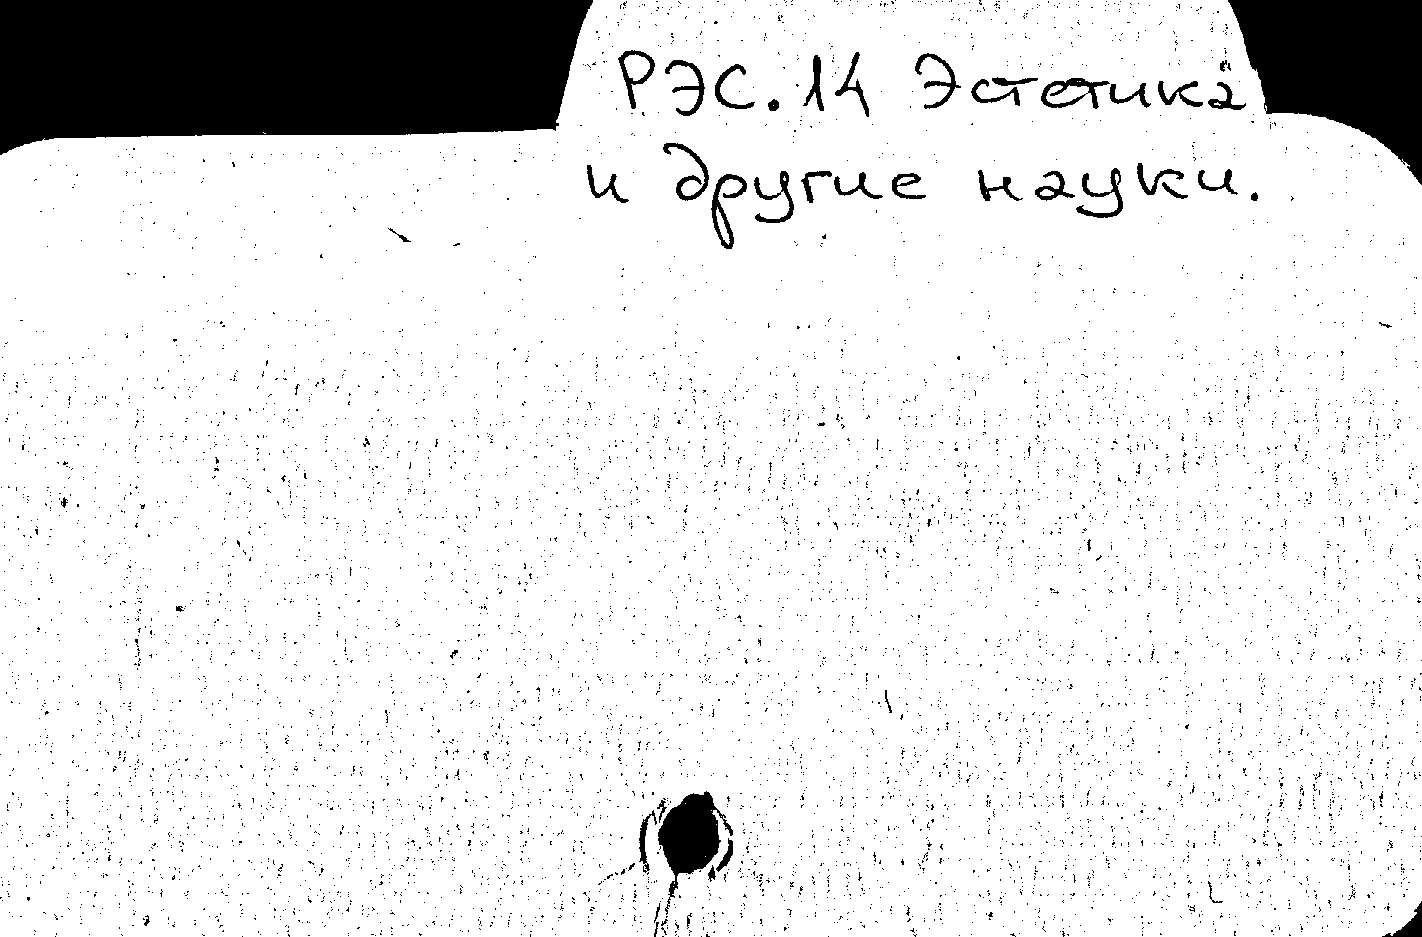 РЭС.14 Эстетика
и другие науки.